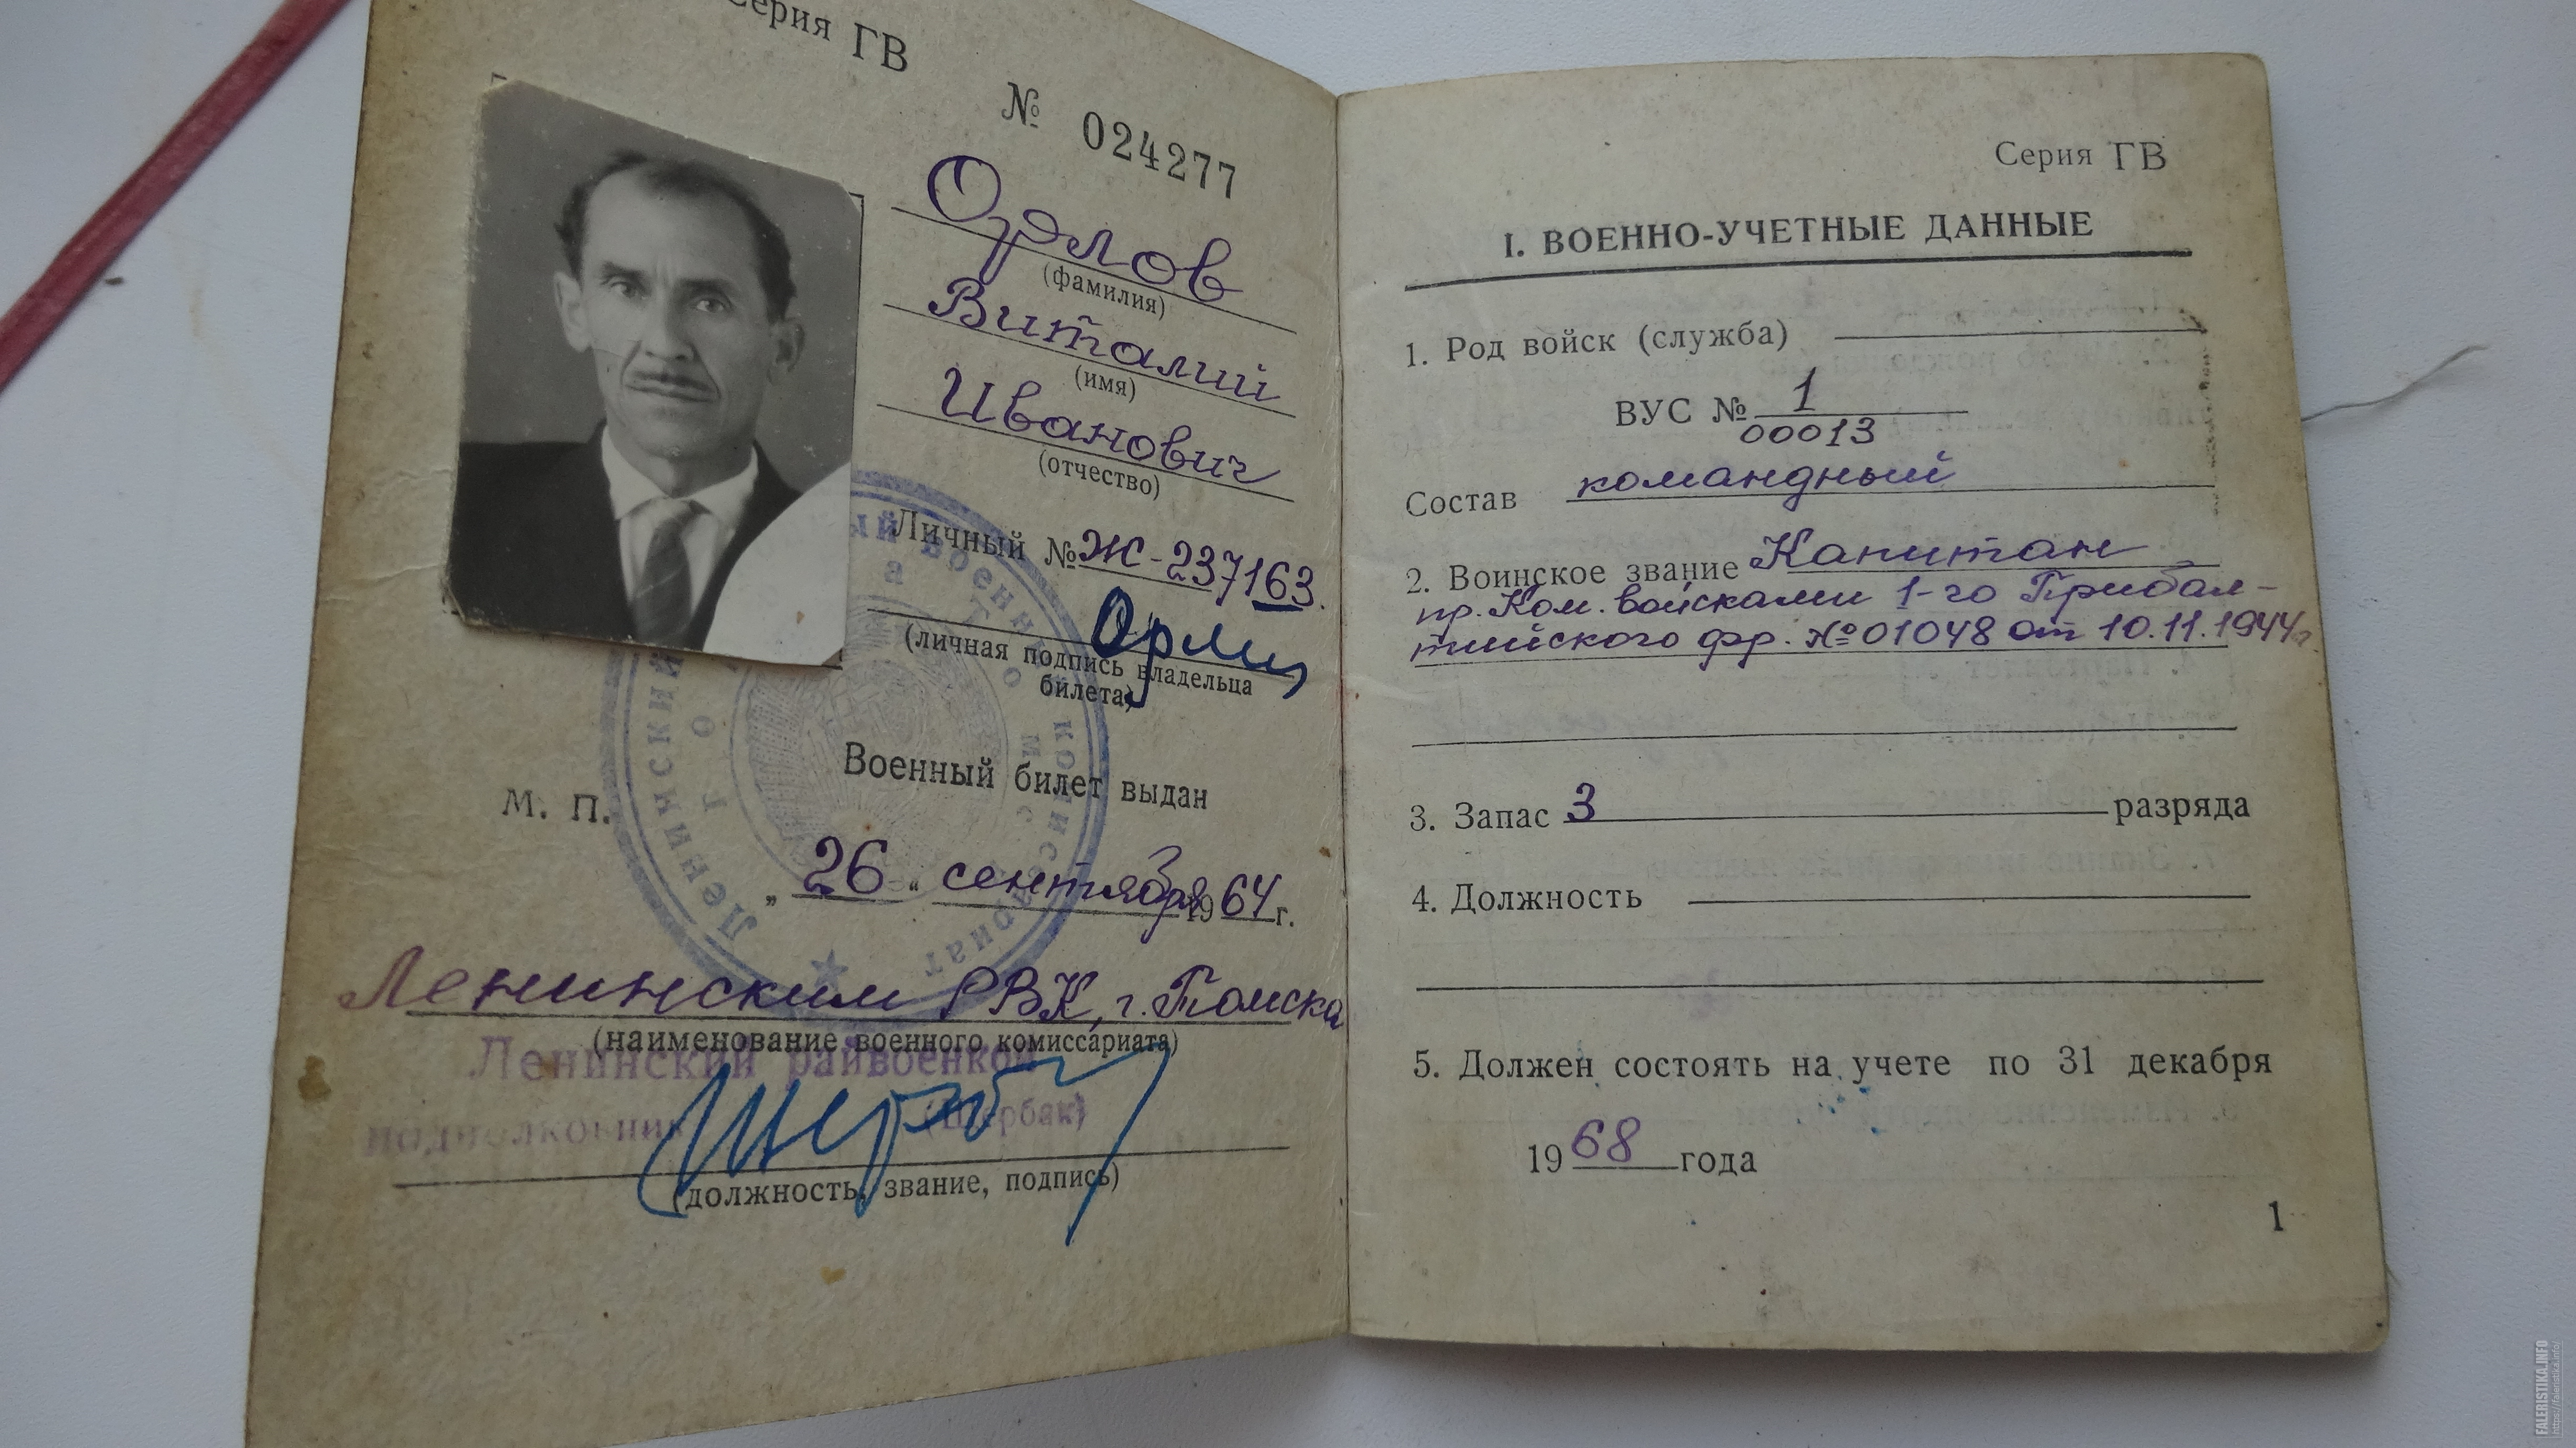 Серия ГВ
№ 024277
Орлов
(фамилия)
Виталий
(имя)
Иванович
(отчество)
Личный № Ж-237163.
(личная подпись владельца
билета)
Военный билет выдан
М. П.
„ 26 “ сентября 1964 г.
Ленинским РВК, г. Томска
(наименование военного комиссариата)
Ленинский райвоенком
подполковник (Щербак)
(должность, звание, подпись)
Серия ГВ
I. ВОЕННО-УЧЕТНЫЕ ДАННЫЕ
1. Род войск (служба)
ВУС № 1
00013
Состав командный
2. Воинское звание Капитан
пр. Ком. войсками 1-го Прибал-
тийского фр. №01048 от 10.11.1944г.
3. Запас 3 разряда
4. Должность
5. Должен состоять на учете по 31 декабря
1968 года
1
FALERISTIKA.INFO
https://faleristika.info/